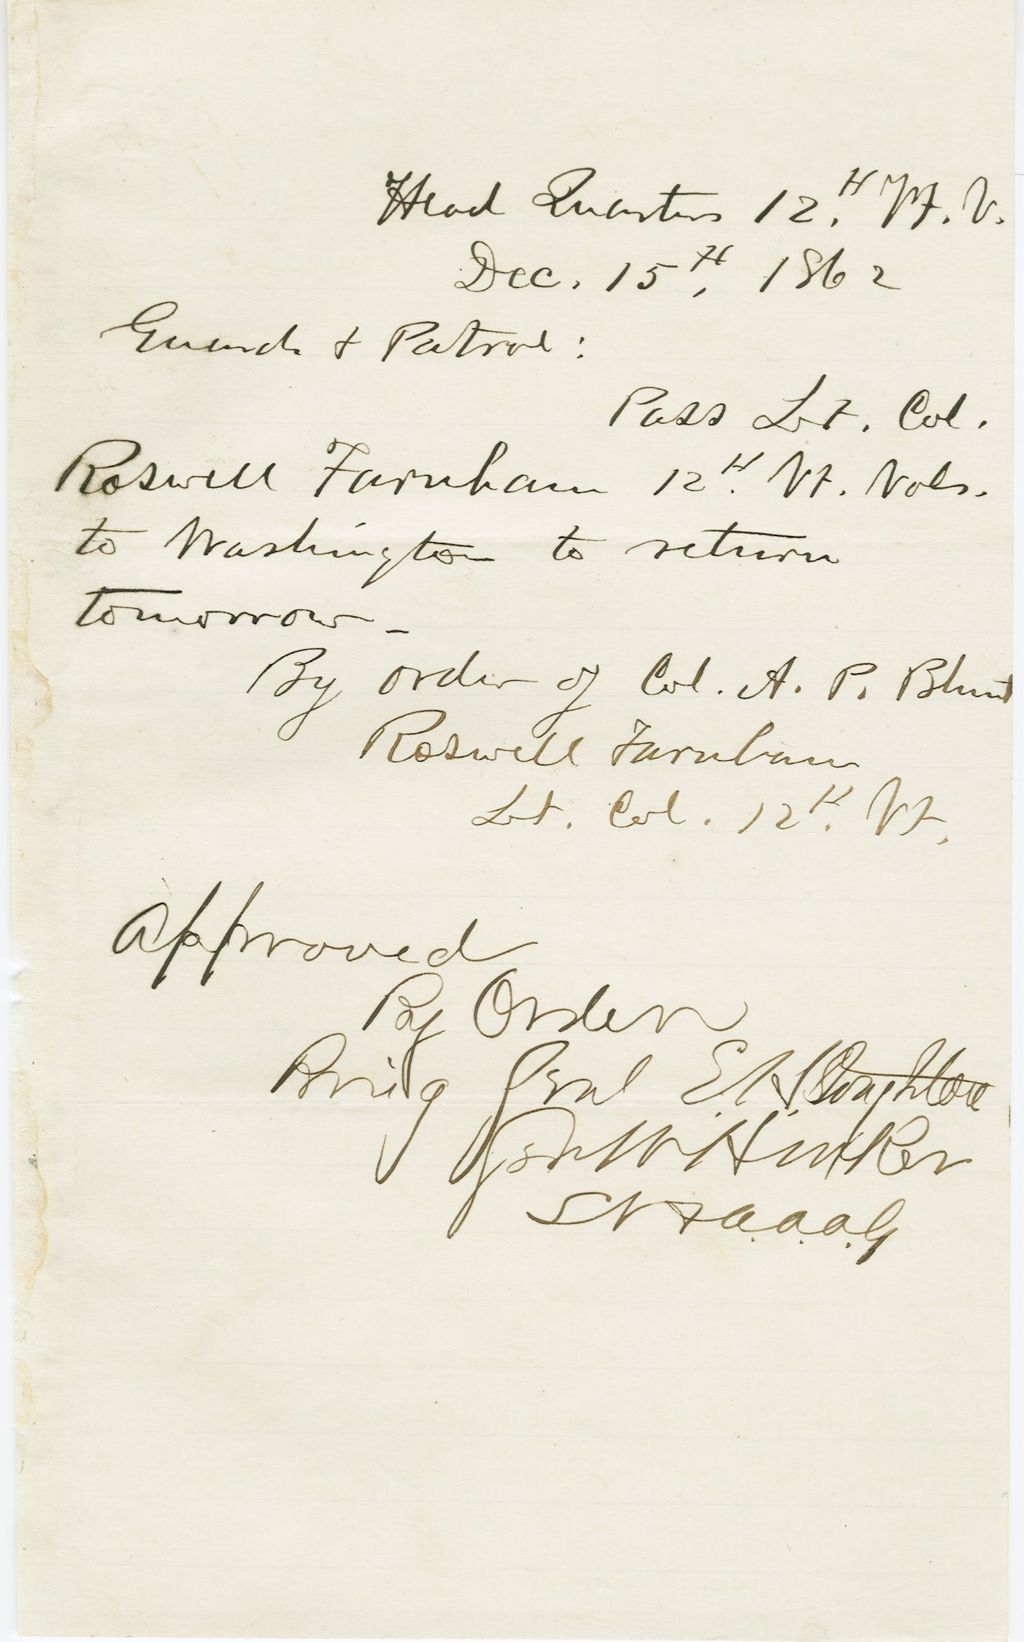 Head Quarters 12.th Vt. V.
Dec. 15th, 1862
Guards & Patrol:
Pass Lt. Col.
Roswell Farnham 12th. Vt. Vols.
to Washington to return
tomorrow -
By order of Col. A. P. Blunt
Roswell Farnham
Lt. Col. 12th. Vt.
Approved
By Order
Brig Genl E. H. Stoughton
Hooker
A.A.A.G